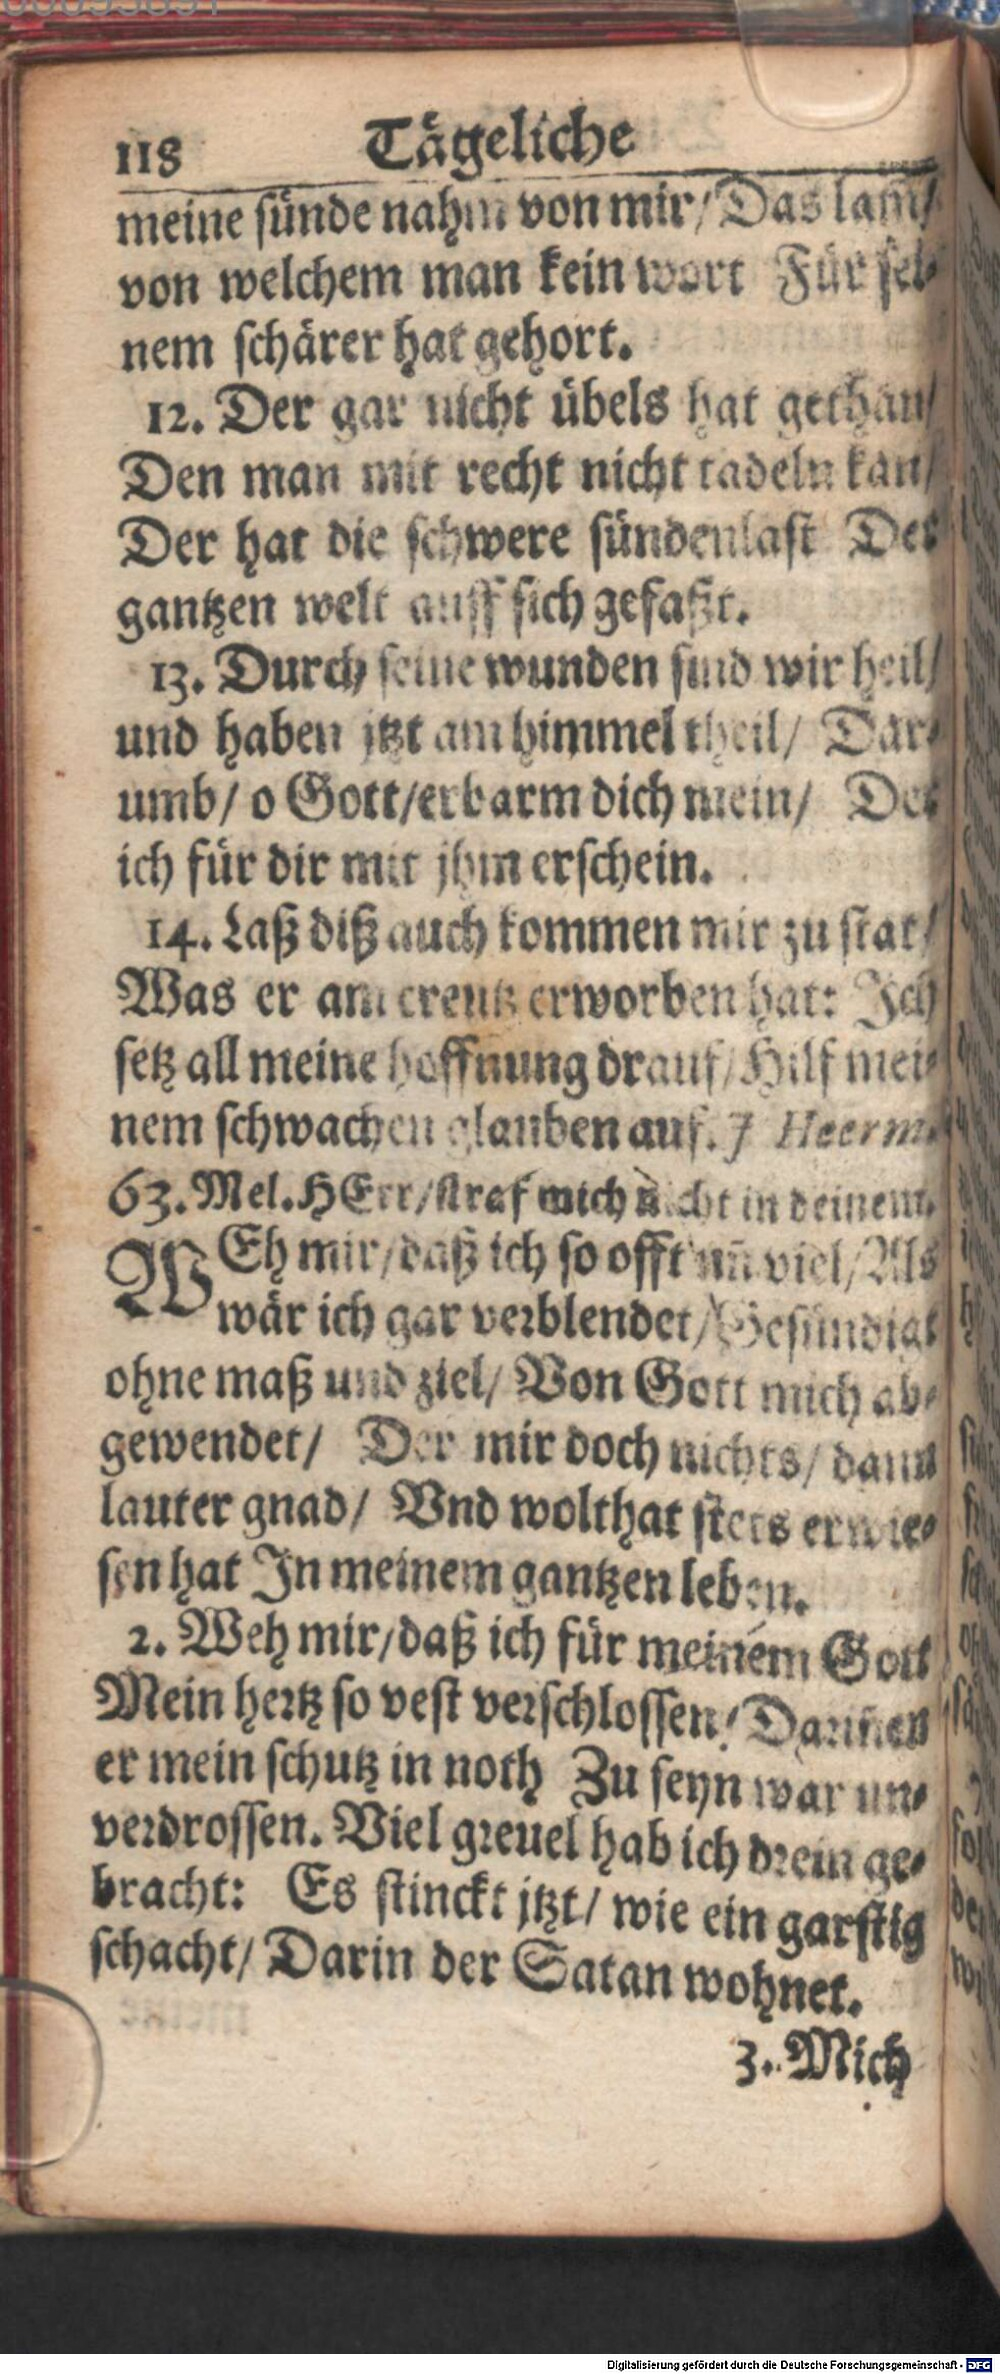 118 Tägeliche
meine sünde nahm von mir/ Das lam̄/
von welchem man kein wort Für sei-
nem schärer hat gehort.
12. Der gar nicht übels hat gethan/
Den man mit recht nicht tadeln kan/
Der hat die schwere sündenlast Der
gantzen welt auff sich gefaßt.
13. Durch seine wunden sind wir heil/
und haben jtzt am himmel theil/ Dar-
umb/ o Gott/ erbarm dich mein/ Der
ich für dir mit jhm erschein.
14. Laß diß auch kommen mir zu stat/
Was er am creutz erworben hat: Ich
setz all meine hoffnung drauf/ Hilf mei-
nem schwachen glauben auf. J Heerm.
63. Mel. HErr/ straf mich nicht in deinem.
WEh mir/ daß ich so offt uñ viel/ Als
wär ich gar verblendet/ Gesündigt
ohne maß und ziel/ Von Gott mich ab-
gewendet/ Der mir doch nichts/ dann
lauter gnad/ Vnd wolthat stets erwie-
sen hat In meinem gantzen leben.
2. Weh mir/ daß ich für meinem Gott
Mein hertz so vest verschlossen/ Darinen
er mein schutz in noth Zu seyn war un-
verdrossen. Viel greuel hab ich drein ge-
bracht: Es stinckt jtzt/ wie ein garstig
schacht/ Darin der Satan wohnet.
3. Mich
Digitalisierung gefördert durch die Deutsche Forschungsgemeinschaft - DFG